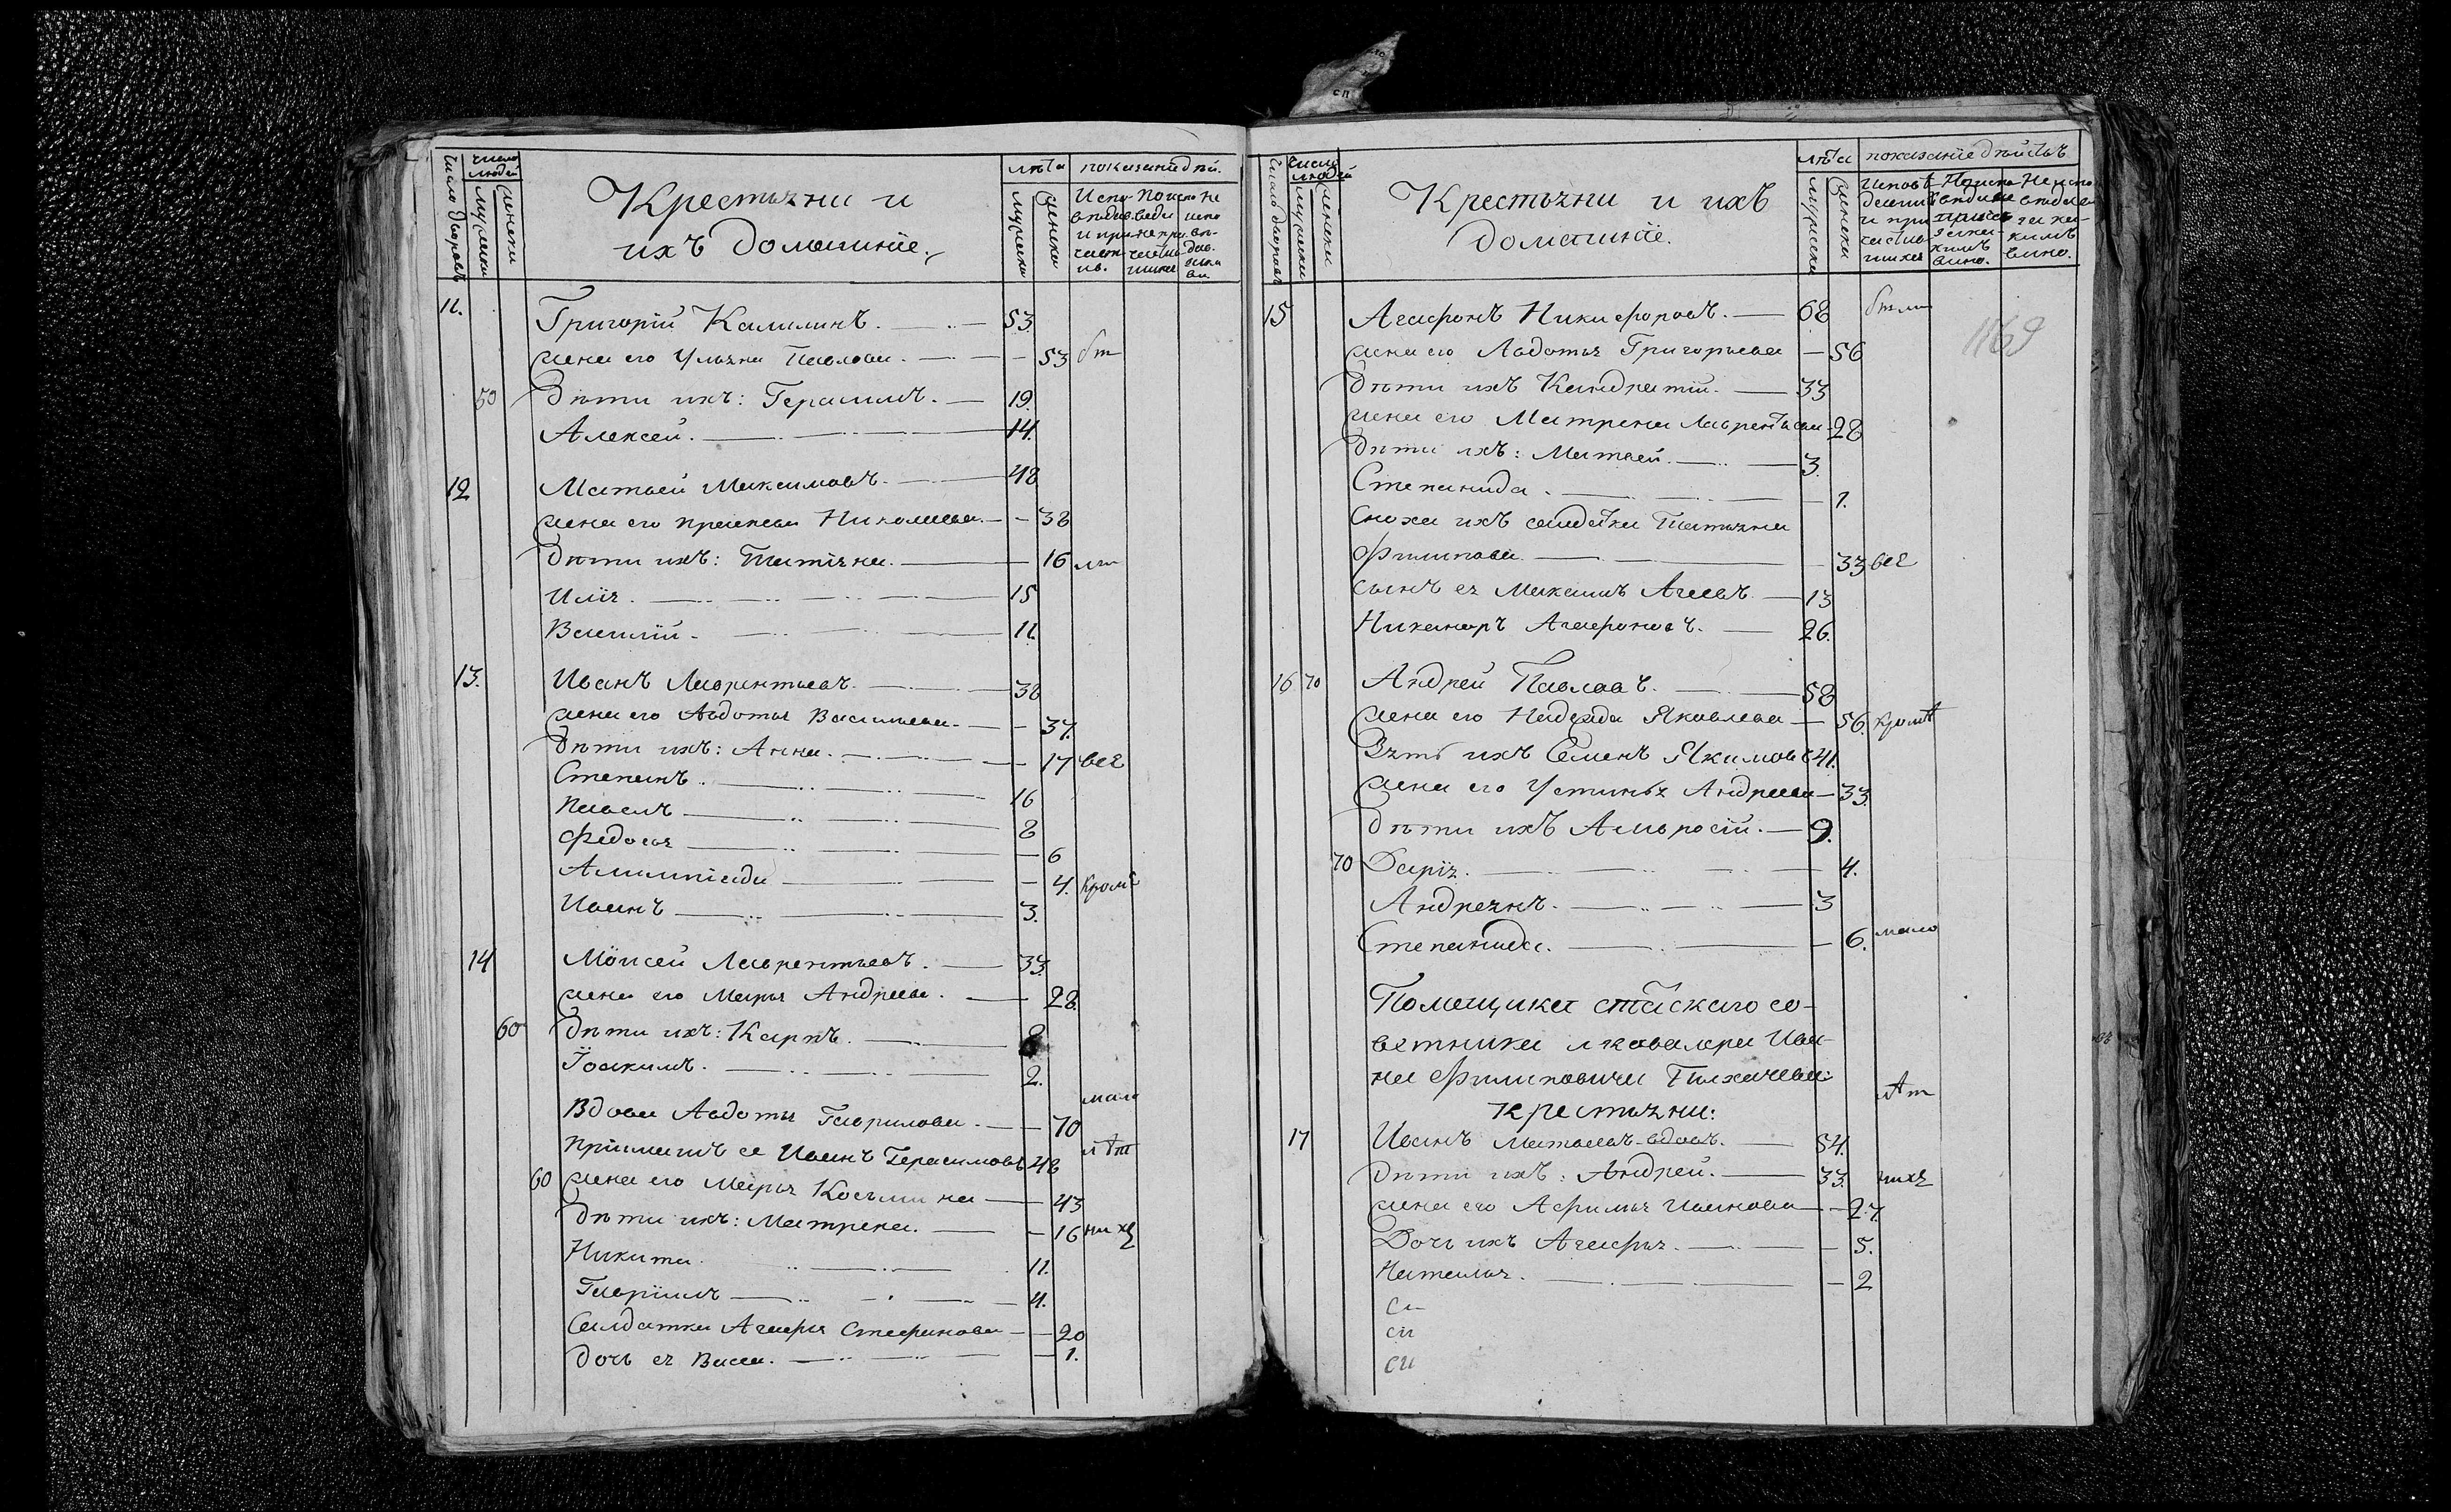 число дворовъ
число людей
мужески
женски
Крестьяни и
ихъ домашніе.
лѣта
мужеска
женска
показаніе дѣй.
11.
Григорій Калининъ. 53.
жена его Ульяна Павлова. 53 бт
50 дѣти ихъ: Герасимъ. 19.
Алексей. 14.
12 Матвей Максимовъ. 48
жена его праскева Николаева. 38
дѣти ихъ: Татіяна. 16
Иліа. 15
Василій. 11.
13. Иванъ Лаврентьевъ. 38
жена его Авдотья Васильева. 37.
дѣти ихъ: Анна. 17 все
Степанъ. 16
Павелъ 8
Федосья 6
Алимпіада 4. кромѣ
Иванъ 3.
14 Моисей Лаврентьевъ. 33.
жена его Марья Андреева. 28.
60 дѣти ихъ: Карпъ.
Іоакимъ. 2.
мало
Вдова Авдотья Гаврилова. 70
пріимышъ ее Иванъ Герасимовъ 48 лѣт
60 жена его Марья Косьмина 43
дѣти ихъ: Матрена. 16 ных
Никита. 11.
Гавріилъ 4.
Салдатка Агафья Стефанова 20
дочь ея Васса. 1.
число дворовъ
число людей
мужески
женски
Крестьяни и ихъ
домашніе.
лѣта
мужески
женски
показаніе дѣйствъ
15 Агафонъ Никифоровъ. 68 были
1169
жена его Авдотья Григорьева 56
дѣти ихъ Кандратій. 33
жена его Матрена Лаврентьева 28
дѣти ихъ: Матвей. 3.
Степанида. 1.
сноха ихъ салдатка Татьяна
Филипова 33 все
сынъ ея Максимъ Агеевъ. 13
Никаноръ Агафоновъ. 26.
16 70 Андрей Павловъ. 58
жена его Надежда Яковлева 56. кромѣ
Зять ихъ Семенъ Якимовъ 41.
жена его Устинья Андреева 33.
дѣти ихъ Амвросій. 9.
70 Дарія. 4.
Андреянъ. 3
Степанида. 6. мало
Помещика статскаго со-
ветника и кавалера Ива-
на Филиповича Пилхачева:
лѣт
крестьяни:
17 Иванъ Матвеевъ вдовъ. 54.
дѣти ихъ: Андрей. 33. ных
жена его Афимья Иванова 27.
Дочь ихъ Агафья. 5.
Наталья. 2